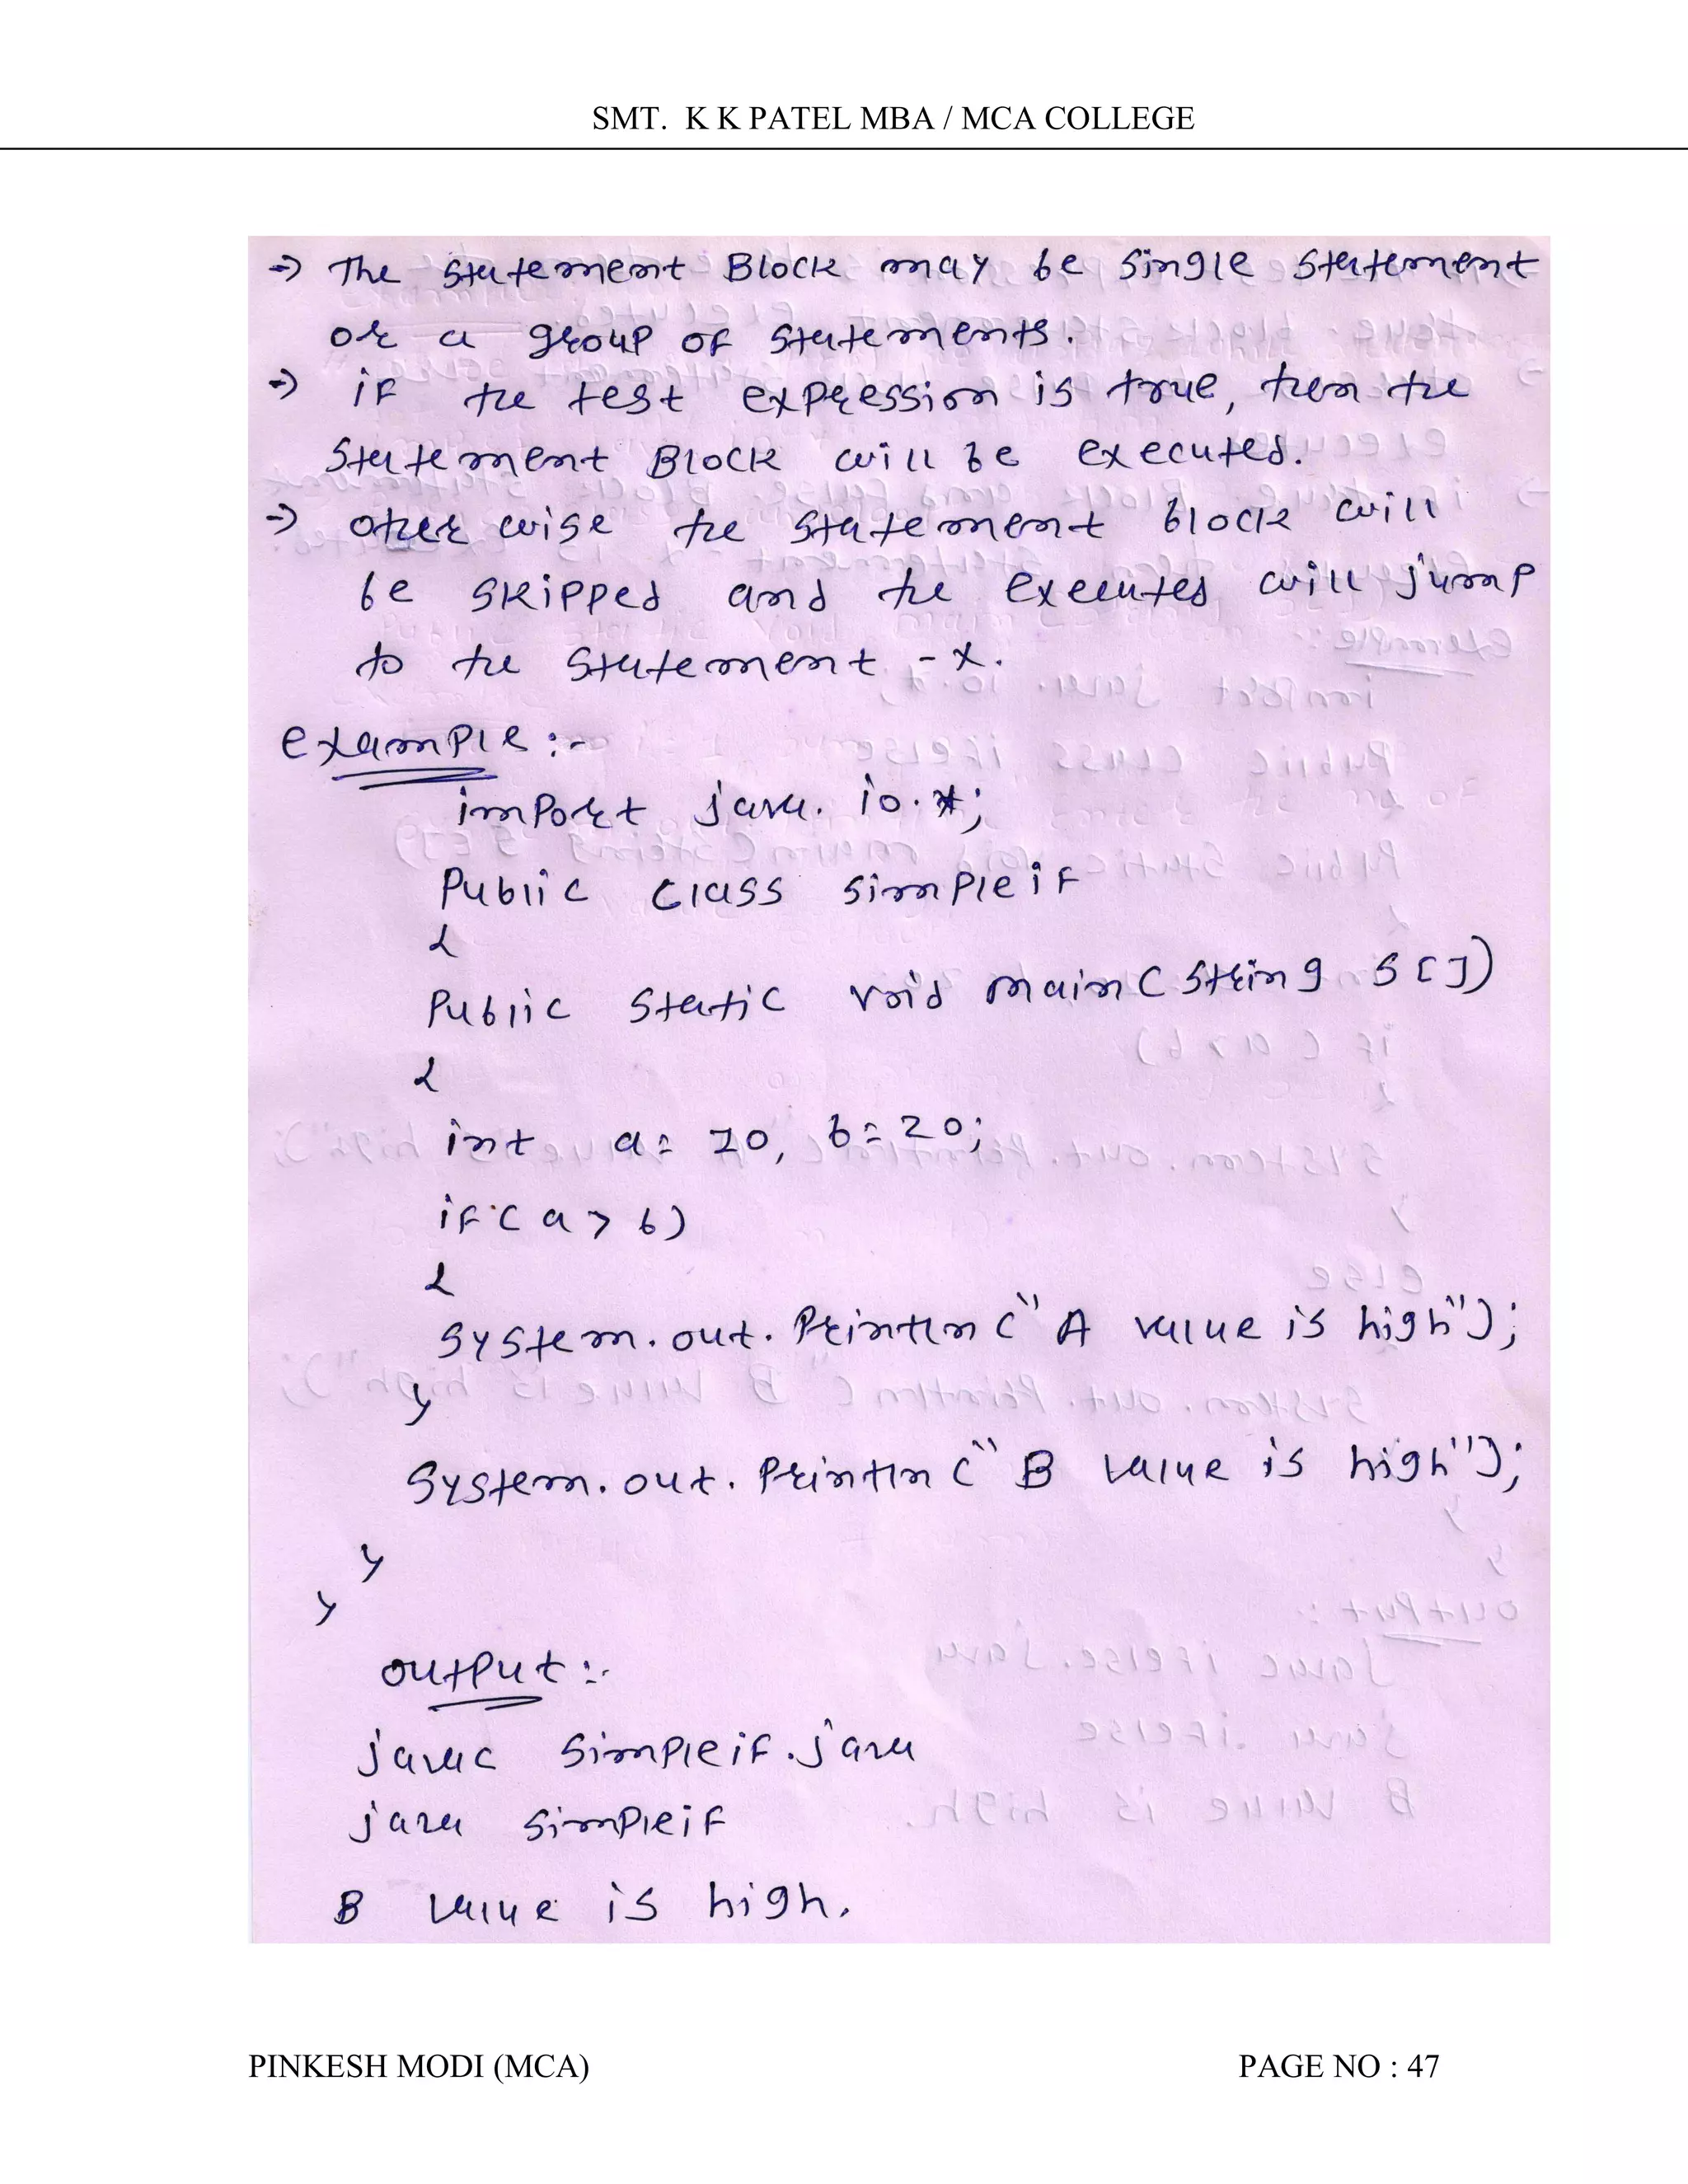 SMT. K K PATEL MBA / MCA COLLEGE
→ The statement Block may be single statement
or a group of statements.
→ if the test expression is true, then the
statement Block will be executed.
→ other wise the statement block will
be skipped and the executed will jump
to the statement - x.
example :-
import java. io.*;
Public class simpleif
{
Public static void main ( String S [])
{
int a = 10, b = 20;
if ( a > b)
{
System. out. Println (" A value is high");
}
System. out. Println (" B value is high");
}
}
output :-
javac simpleif .java
java simpleif
B value is high.
PINKESH MODI (MCA) PAGE NO : 47